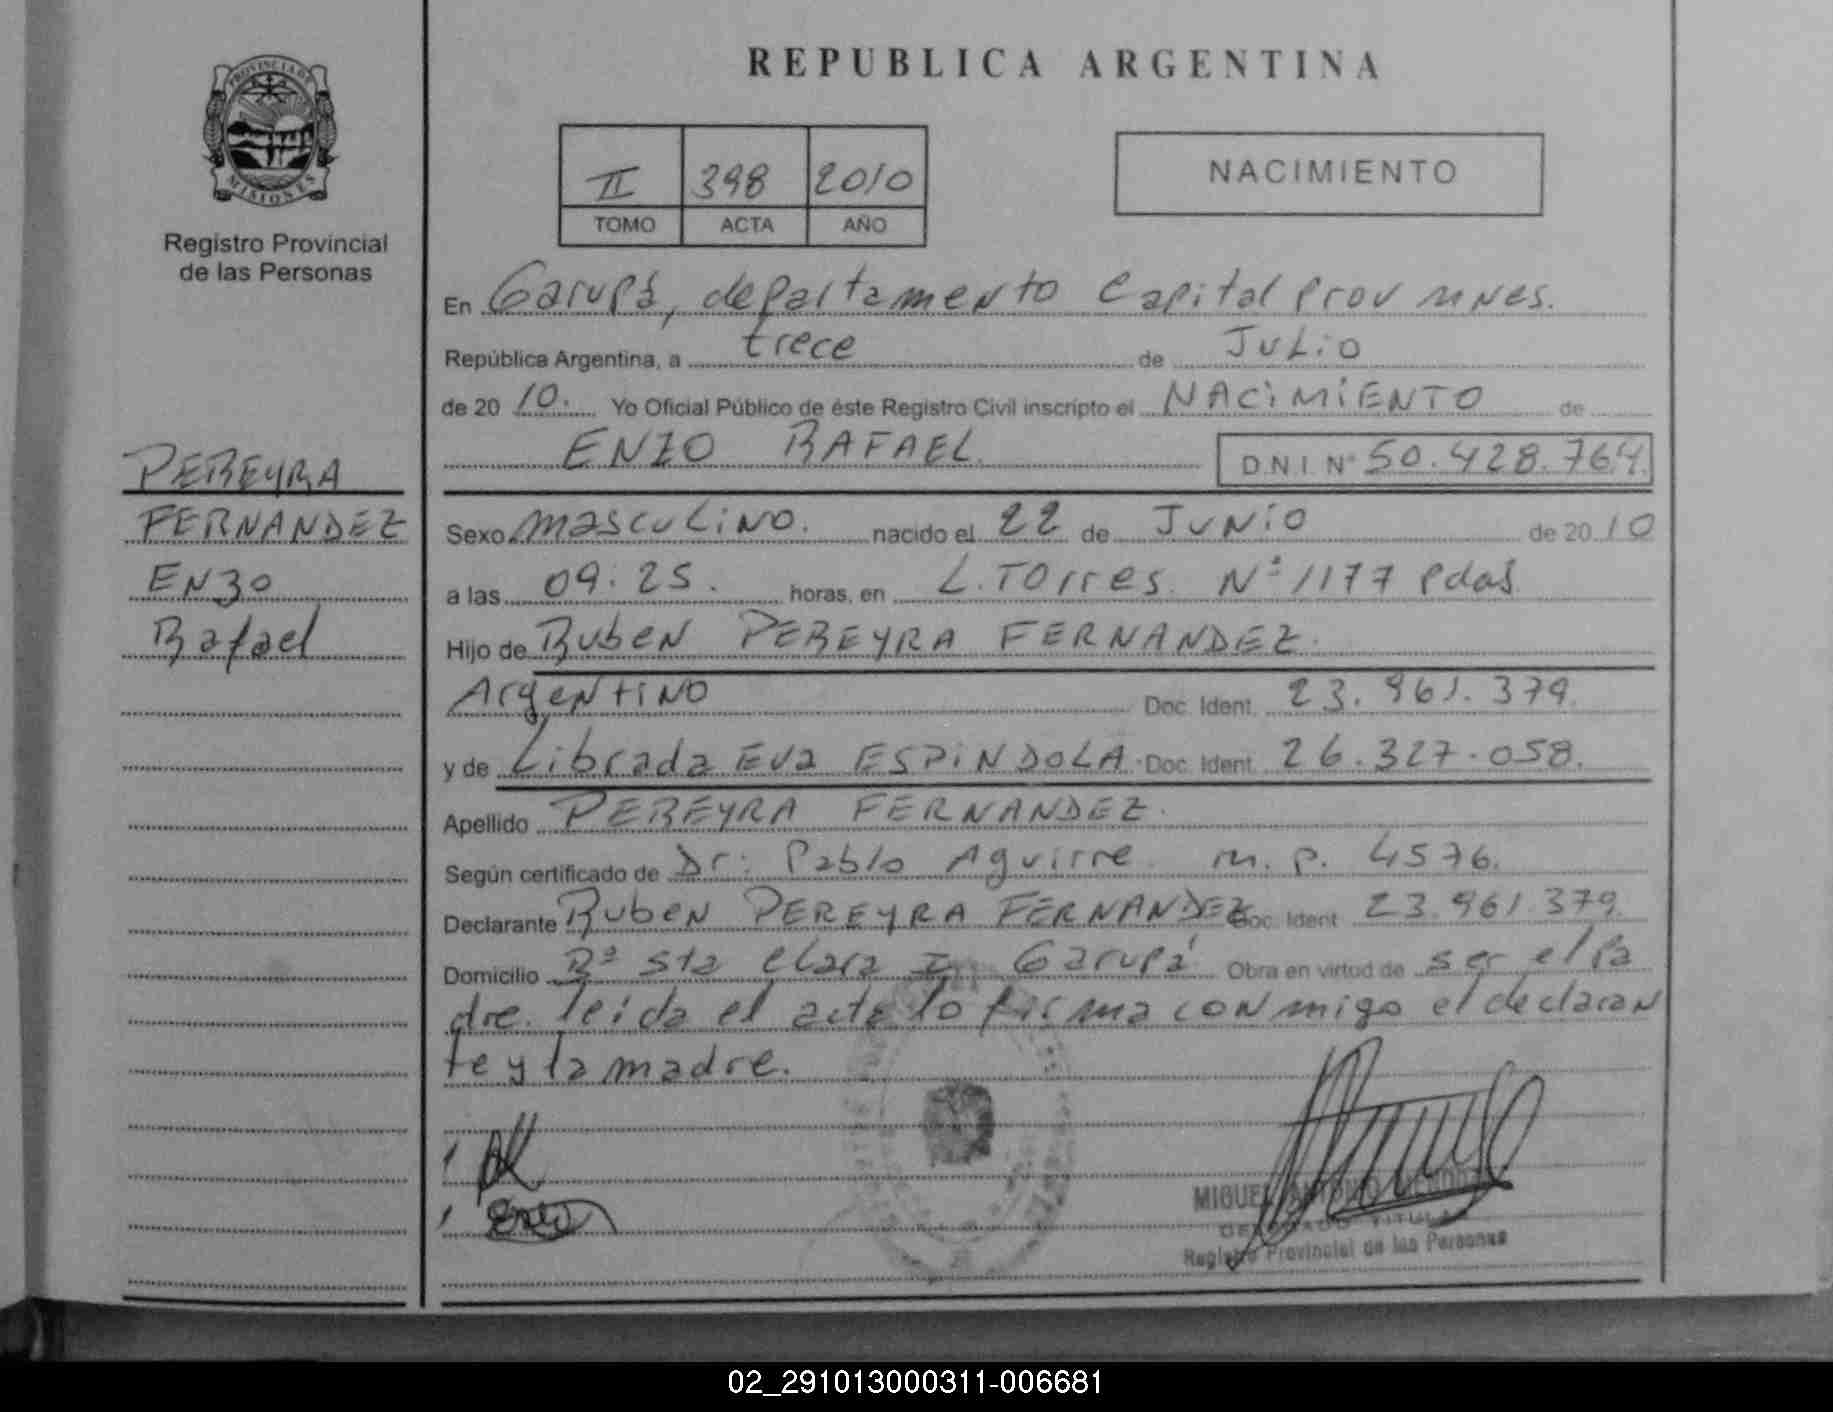 PROVINCIA DE
MISIONES
Registro Provincial
de las Personas
PEREYRA
FERNANDEZ
ENZO
Rafael
REPUBLICA ARGENTINA
II 398 2010
TOMO ACTA AÑO
NACIMIENTO
En Garupá, departamento Capital Prov mnes.
República Argentina, a trece de JuLio
de 20 10. Yo Oficial Público de éste Registro Civil inscripto el NACiMiENTO de
ENZO RAFAEL. D.N.I. Nº 50.428.764.
Sexo masculino. nacido el 22 de JUNiO de 20 10
a las 09:25. horas, en L. Torres. Nº 1177 Pdas.
Hijo de Ruben PEREYRA FERNANDEZ.
ArgentiNO Doc. Ident. 23.961.379.
y de Librada Eva ESPiNDOLA. Doc. Ident. 26.327.058.
Apellido PEREYRA FERNANDEZ.
Según certificado de Dr: Pablo Aguirre. m. p. 4576.
Declarante Ruben PEREYRA FERNANDEZ Doc. Ident 23.961.379.
Domicilio Bº sta clara I Garupá Obra en virtud de ser el Pa
dre. leida el acta lo firma conmigo el declaran
te y la madre.
MIGUEL ANTONIO
DELEGADO TITULAR
Registro Provincial de las Personas
02_291013000311-006681